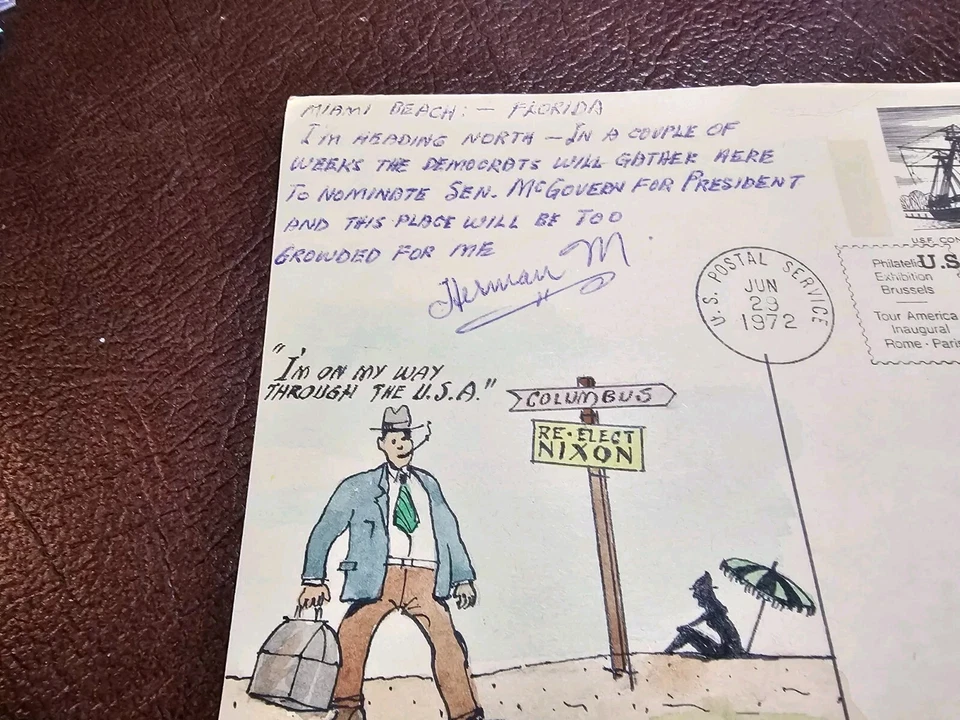 MIAMI BEACH: — FLORIDA
I'M HEADING NORTH — IN A COUPLE OF
WEEKS THE DEMOCRATS WILL GATHER HERE
TO NOMINATE SEN. MCGOVERN FOR PRESIDENT
AND THIS PLACE WILL BE TOO
CROWDED FOR ME
Herman M.
"I'M ON MY WAY
THROUGH THE U.S.A."
COLUMBUS
RE-ELECT
NIXON
U.S. POSTAL SERVICE
JUN
29
1972
U.S.F. CON
Philatelic U.S
Exhibition
Brussels
Tour America
Inaugural
Rome · Paris